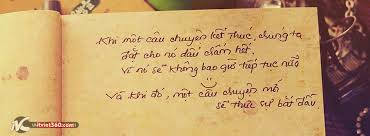 Khi một câu chuyện kết thúc, chúng ta
đặt cho nó dấu chấm hết.
Vì nó sẽ không bao giờ tiếp tục nữa
Và khi đó, một câu chuyện mới
sẽ thực sự bắt đầu
itviet360.com